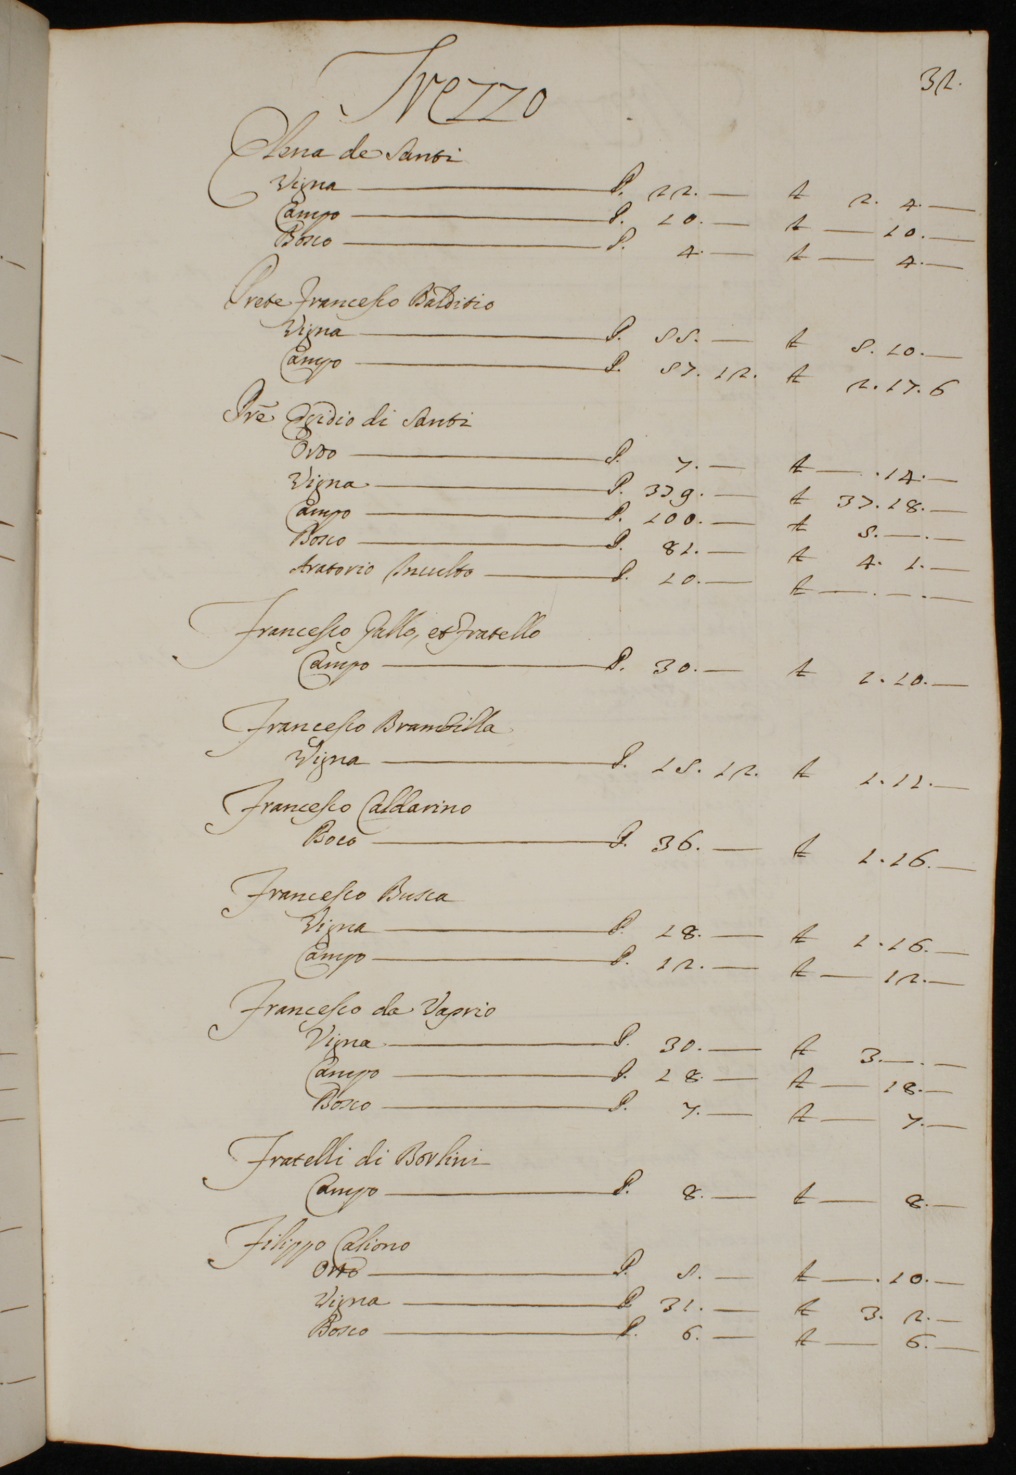 Trezzo 32.
Elena de Santi
Vigna — P. 22. — £ 2. 4. —
Campo — P. 10. — £ — 10. —
Bosco — P. 4. — £ — 4. —
Prete Francesco Balditio
Vigna — P. 55. — £ 5. 10. —
Campo — P. 57. 12. £ 2. 17. 6
Prē Egidio di Santi
Orto — P. 7. — £ — . 14. —
Vigna — P. 379. — £ 37. 18. —
Campo — P. 100. — £ 5. — . —
Bosco — P. 81. — £ 4. 1. —
Aratorio Inculto — P. 10. — £ — . — . —
Francesco Gallo, et fratello
Campo — P. 30. — £ 1. 10. —
Francesco Brambilla
Vigna — P. 15. 12. £ 1. 11. —
Francesco Caldarino
Boco — P. 36. — £ 1. 16. —
Francesco Busca
Vigna — P. 18. — £ 1. 16. —
Campo — P. 12. — £ — 12. —
Francesco da Vaprio
Vigna — P. 30. — £ 3. — . —
Campo — P. 18. — £ — 18. —
Bosco — P. 7. — £ — 7. —
Fratelli di Borlini
Campo — P. 8. — £ — 8. —
Filippo Caliono
Orto — P. 5. — £ — . 10. —
Vigna — P. 31. — £ 3. 2. —
Bosco — P. 6. — £ — 6. —